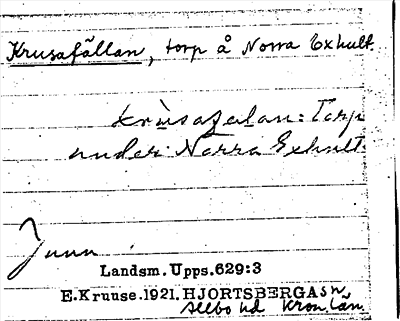 Krusafällan, torp å Norra Exhult.
krùsafalan: Torp
under Norra Exhult
Landsm. Upps. 629:3
E. Kruuse. 1921. HJORTSBERGA sn
Allbo hd Kron. län